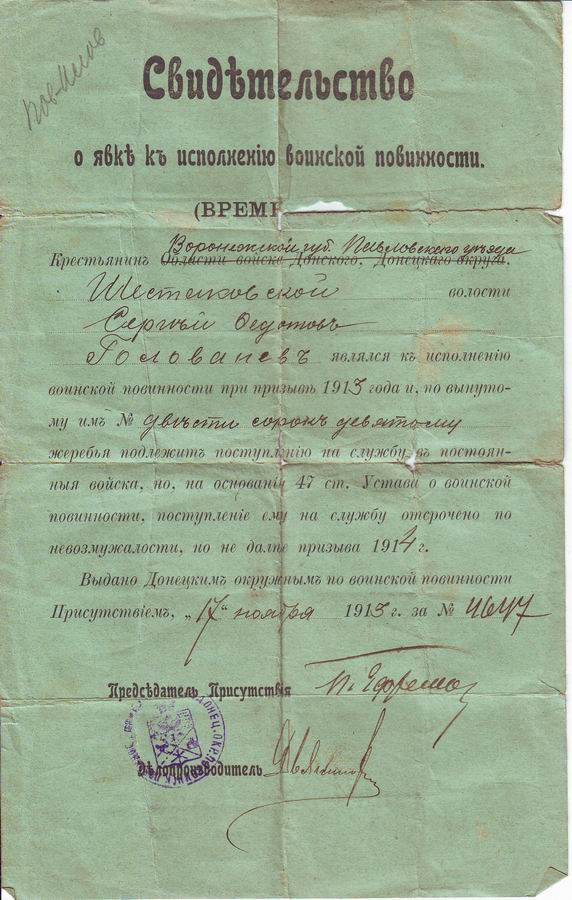 Свидѣтельство
о явкѣ къ исполненію воинской повинности.
(ВРЕМЕ
Воронежской губ. Павловскаго уѣзда
Крестьянинъ Области войска Донского, Донецкаго округа,
волости
Сергѣй Федотовъ
Голованевъ являлся къ исполненію
воинской повинности при призывѣ 1913 года и, по вынуто-
му имъ № двѣсти сорокъ девятому
жеребья подлежитъ поступленію на службу въ постоян-
ныя войска, но, на основаніи 47 ст. Устава о воинской
повинности, поступленіе ему на службу отсрочено по
невозмужалости, но не далѣе призыва 1914 г.
Выдано Донецкимъ окружнымъ по воинской повинности
Присутствіемъ, „17" ноября 1913 г. за № 4647
Предсѣдатель Присутствія
Дѣлопроизводитель